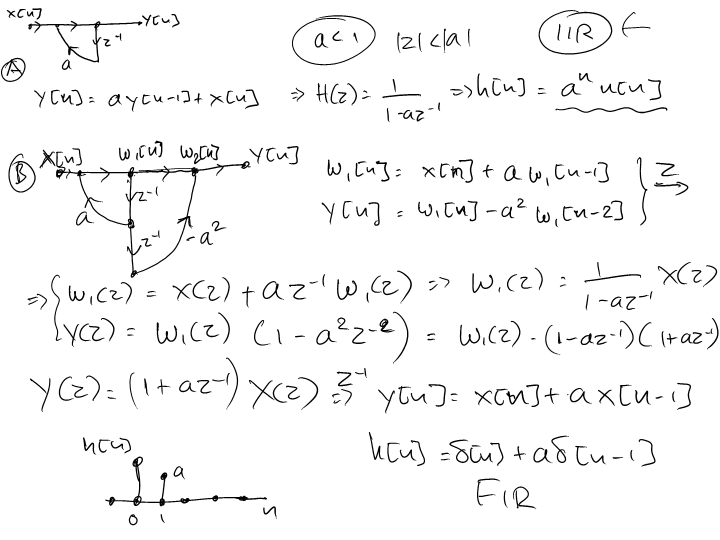 x[n] y[n]
z⁻¹
a
a<1 |z|<|a| IIR ←
(A)
y[n] = a y[n-1] + x[n] ⇒ H(z) = 1/(1-az⁻¹) ⇒ h[n] = aⁿ u[n]
(B) x[n] w₁[n] w₂[n] y[n]
a z⁻¹
z⁻¹ -a²
w₁[n] = x[n] + a w₁[n-1]
y[n] = w₁[n] - a² w₁[n-2] } Z ⇒
⇒ { w₁(z) = X(z) + a z⁻¹ w₁(z) ⇒ w₁(z) = 1/(1-az⁻¹) X(z)
Y(z) = w₁(z) (1 - a² z⁻²) = w₁(z) · (1-az⁻¹)(1+az⁻¹)
Y(z) = (1+az⁻¹) X(z) z⁻¹ ⇒ y[n] = x[n] + a x[n-1]
h[n]
a
0 1 n
h[n] = δ[n] + aδ[n-1]
FIR